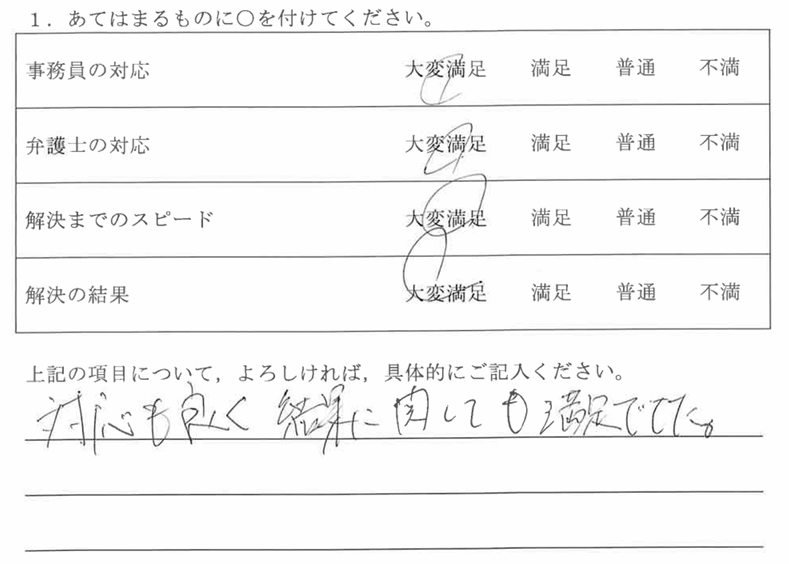 1．あてはまるものに○を付けてください。
事務員の対応 大変満足 満足 普通 不満
弁護士の対応 大変満足 満足 普通 不満
解決までのスピード 大変満足 満足 普通 不満
解決の結果 大変満足 満足 普通 不満
上記の項目について，よろしければ，具体的にご記入ください。
対応も良く 結果に関しても満足でした。